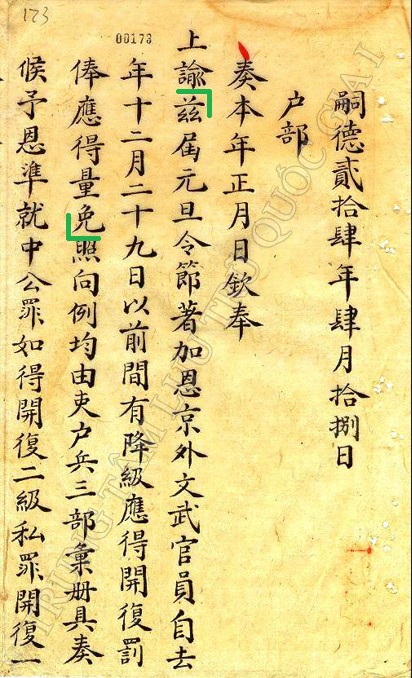 嗣德貳拾肆年肆月拾捌日
户部
奏本年正月日欽奉
上諭茲届元旦令節著加恩京外文武官員自去
年十二月二十九日以前間有降級應得開復罰
俸應得量免照向例均由吏户兵三部彙册具奏
候予恩準就中公罪如得開復二級私罪開復一
123
00173
TRUNG TÂM LƯU TRỮ QUỐC GIA I